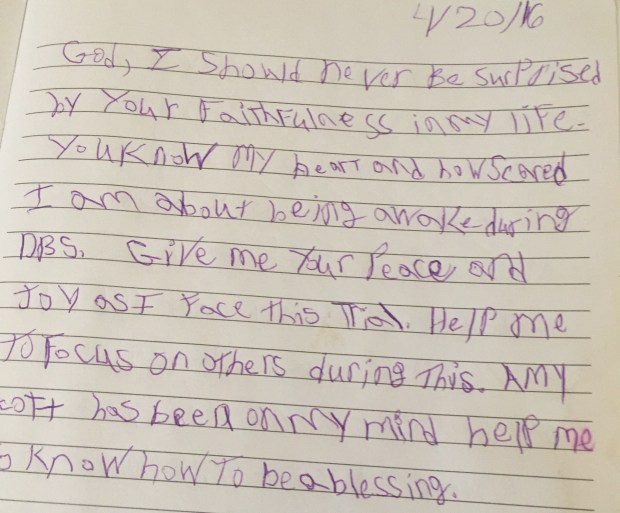 4/20/16
God, I should never be surprised
by Your Faithfulness in my life.
You Know my heart and how Scared
I am about being awake during
DBS. Give me Your Peace and
Joy as I Face this Trial. Help me
To Focus on others during This. Amy
cott has been on my mind help me
o Know how To be a blessing.